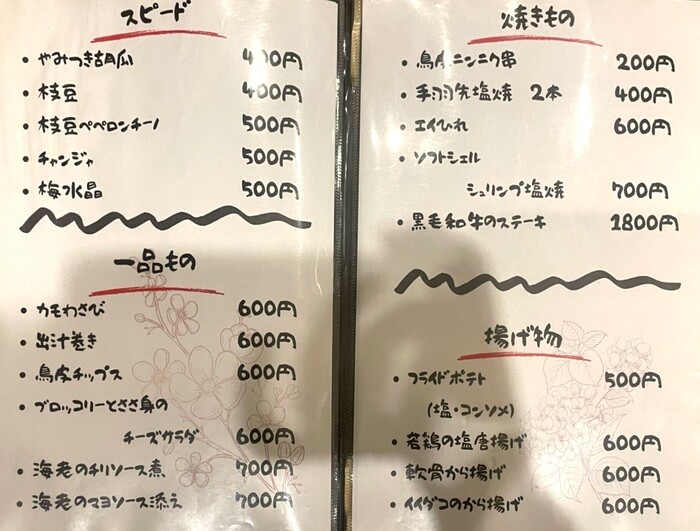 スピード
・やみつき胡瓜 400円
・枝豆 400円
・枝豆ペペロンチーノ 500円
・チャンジャ 500円
・梅水晶 500円
一品もの
・カモわさび 600円
・出汁巻き 600円
・鳥皮チップス 600円
・ブロッコリーとささ身の
チーズサラダ 600円
・海老のチリソース煮 700円
・海老のマヨソース添え 700円
焼きもの
・鳥皮ニンニク串 200円
・手羽先塩焼 2本 400円
・エイひれ 600円
・ソフトシェル
シュリンプ塩焼 700円
・黒毛和牛のステーキ 1800円
揚げ物
・フライドポテト 500円
(塩・コンソメ)
・若鶏の塩唐揚げ 600円
・軟骨から揚げ 600円
・イイダコのから揚げ 600円